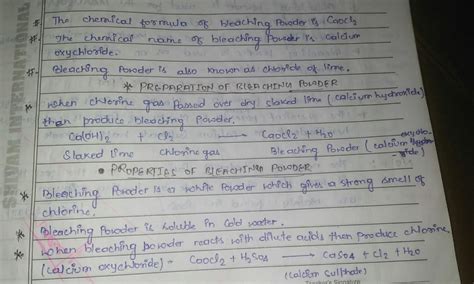 The chemical formula of bleaching Powder is CaOCl2
The chemical name of bleaching Powder is Calcium
oxychloride.
Bleaching Powder is also known as chloride of lime.
* PREPARATION OF BLEACHING POWDER
* When chlorine gas Passed over dry slaked lime (calcium hydroxide)
than produce Bleaching Powder.
Ca(OH)2 + Cl2 → CaOCl2 + H2O
Slaked lime Chlorine gas Bleaching Powder (calcium
• PROPERTIES OF BLEACHING POWDER
* Bleaching Powder is a white Powder which gives a strong smell of
chlorine.
* Bleaching Powder is soluble in Cold water.
* When bleaching powder reacts with dilute acids than produce chlorine.
(calcium oxychloride) - CaOCl2 + H2SO4 → CaSO4 + Cl2 + H2O
(Calcium Sulphate)
Teacher's Signature
SHIVAM INTERNATIONAL